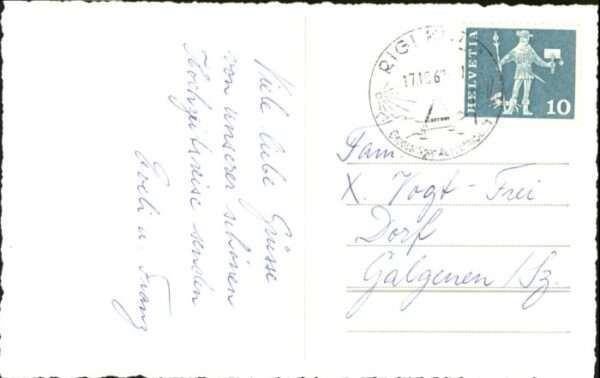 Viele liebe Grüsse
von unserer schönen
Hochzeitsreise senden
u. Franz
RIGI
17.10.6
HELVETIA
10
Fam.
X. Vogt-Frei
Dorf
Galgenen/Sz.